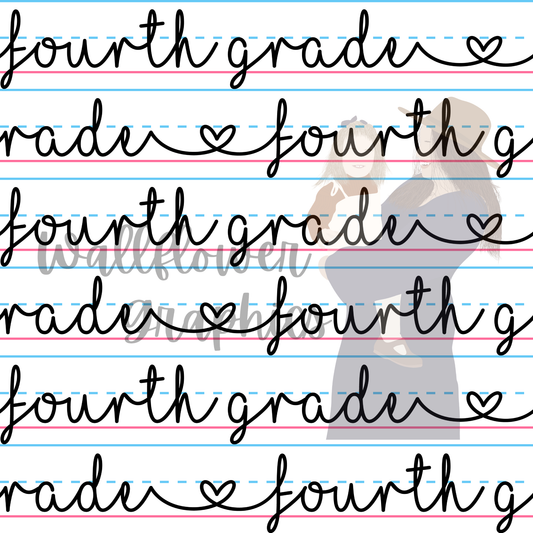 fourth grade
rade fourth g
fourth grade
Wallflower
rade fourth g
Graphics
fourth grade
rade fourth g